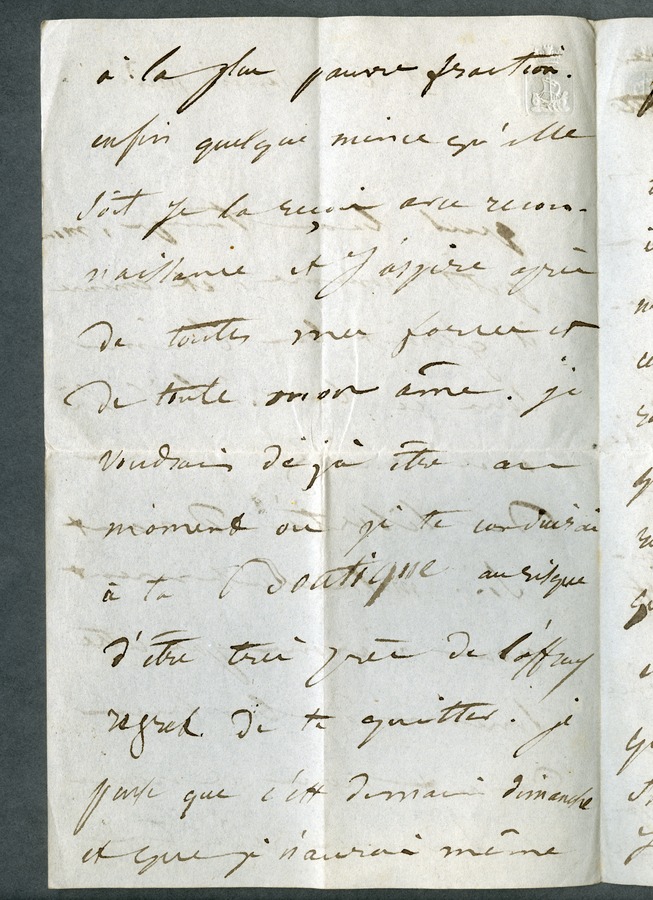 à la plus pauvre fraction.
enfin quelque mince qu'elle
soit je la reçois avec recon-
naissance et j'aspire après
de toutes mes forces et
de toute mon âme. je
voudrais déjà être au
moment où je te conduirai
à ta Boutique au risque
d'être très près de l'affreux
regret de te quitter. je
pense que c'est demain dimanche
et que je n'aurai même